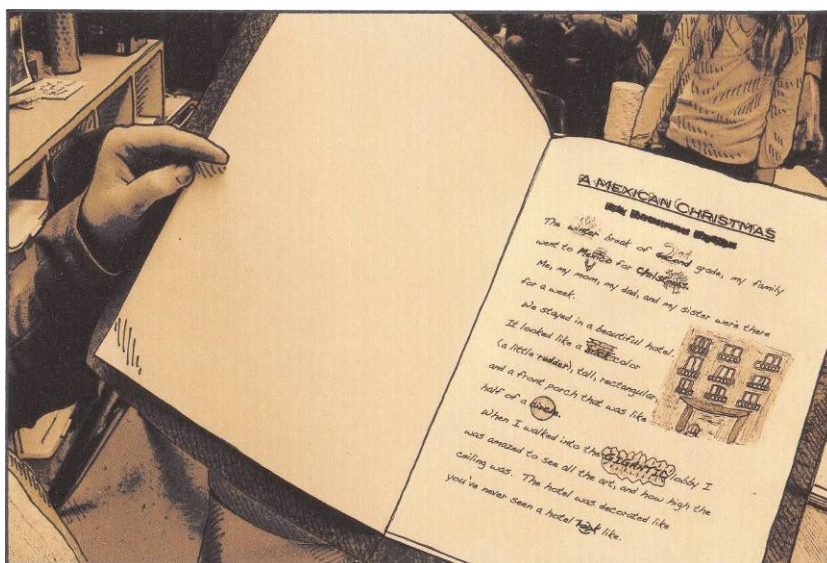 A MEXICAN CHRISTMAS
The winter break of second grade, my family
went to Mexico for Christmas.
Me, my mom, my dad, and my sister were there
for a week.
We stayed in a beautiful hotel.
It looked like a brick color
(a little redder), tall, rectangular,
and a front porch that was like
half of a circle.
When I walked into the GIGANTIC lobby I
was amazed to see all the art, and how high the
ceiling was. The hotel was decorated like
you've never seen a hotel look like.